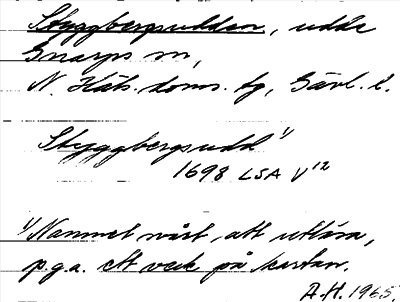 Styggbergsudden, udde
Gnarps sn,
N. Häls. doms. tg, Gävl. l.
Styggbergsudd 1)
1698 LSA V 12
1) Namnet svårt att utläsa,
p.g.a. ett veck på kartan.
A.H. 1965.